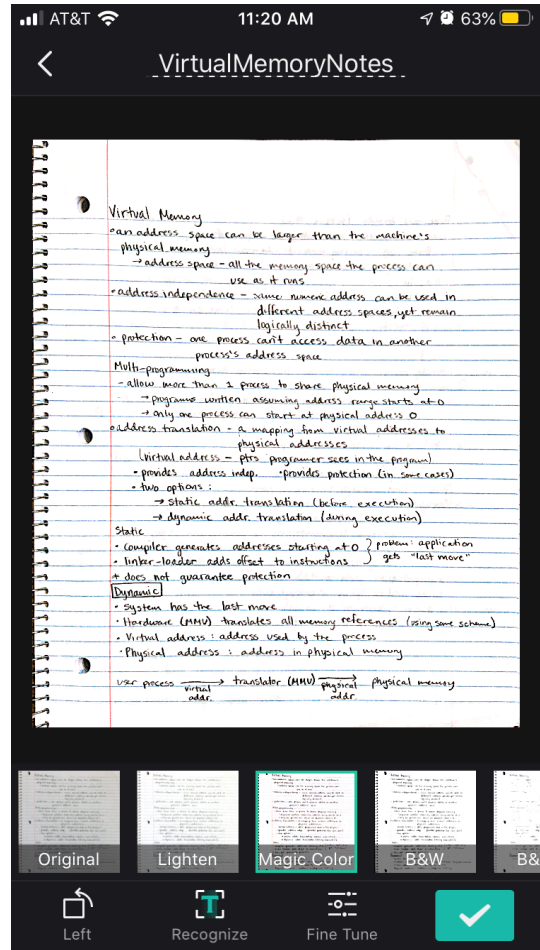 AT&T 11:20 AM 63%
VirtualMemoryNotes
Virtual Memory
•an address space can be larger than the machine's
physical memory
→ address space - all the memory space the process can
use as it runs
•address independence - same numeric address can be used in
different address spaces, yet remain
logically distinct
• protection - one process can't access data in another
process's address space
Multi-programming
- allow more than 1 process to share physical memory
→ programs written assuming address range starts at 0
→ only one process can start at physical address 0
•address translation - a mapping from virtual addresses to
physical addresses
(virtual address - ptrs programer sees in the program)
• provides address indep. •provides protection (in some cases)
• two options :
→ static addr. translation (before execution)
→ dynamic addr. translation (during execution)
Static
• compiler generates addresses starting at 0 } problem: application
• linker-loader adds offset to instructions gets "last move"
+ does not guarantee protection
Dynamic
• system has the last move
• Hardware (MMU) translates all memory references (using some scheme)
• Virtual address : address used by the process
• Physical address : address in physical memory
user process → translator (MMU) → physical memory
virtual addr. physical addr.
Original Lighten Magic Color B&W B&
Left Recognize Fine Tune